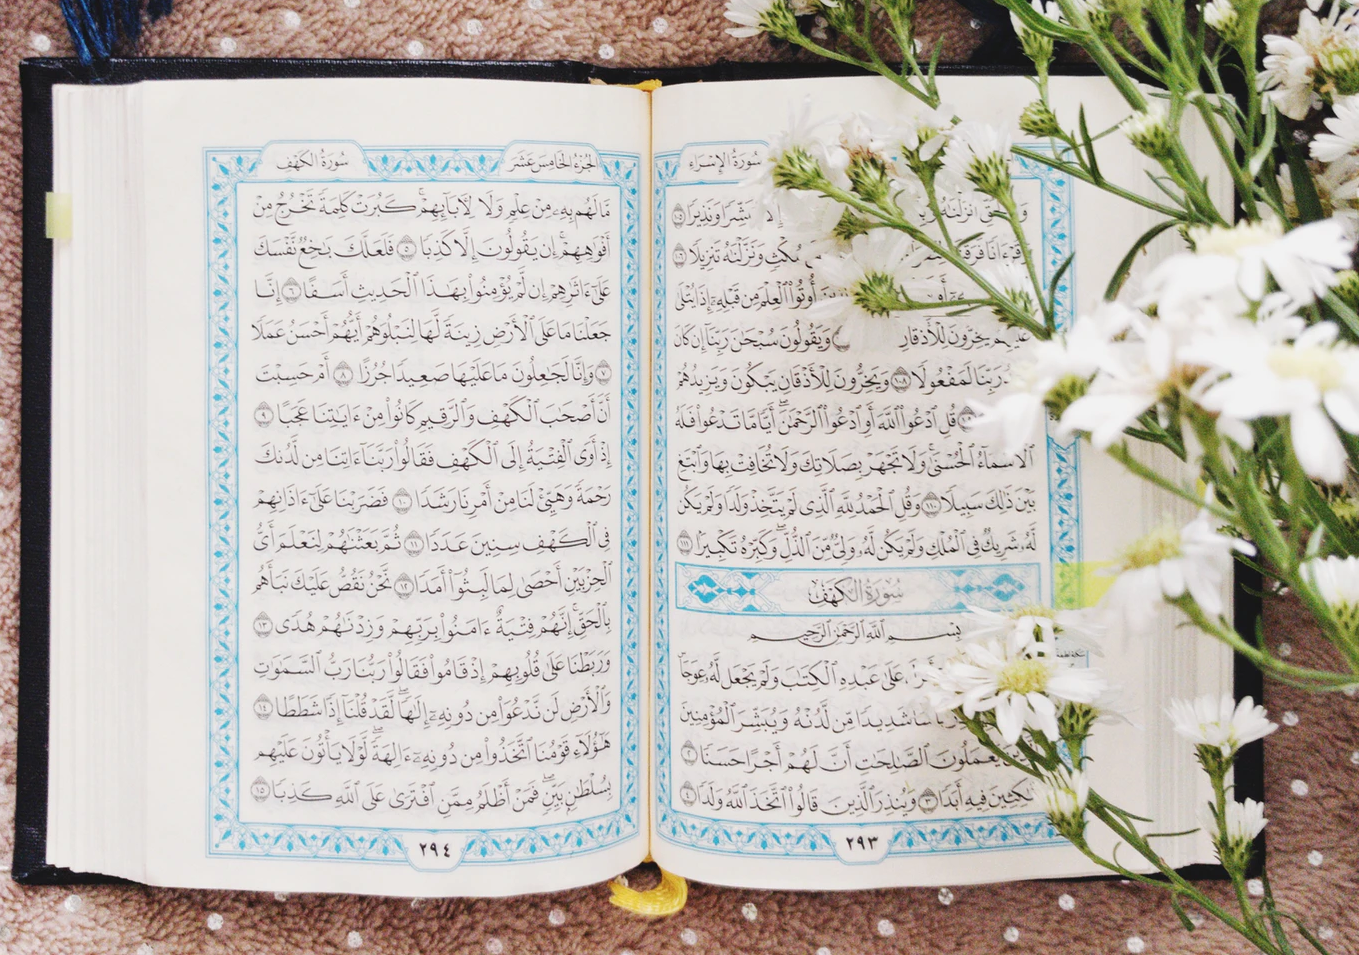 سُورَةُ الإِسْرَاء
أَنزَلْنَٰهُ مُبَشِّرًا وَنَذِيرًا ١٠٥
وَقُرْءَانًا مُكْثٍ وَنَزَّلْنَٰهُ تَنزِيلًا ١٠٦
أُوتُوا۟ ٱلْعِلْمَ مِن قَبْلِهِۦٓ إِذَا يُتْلَىٰ
عَلَيْهِمْ يَخِرُّونَ لِلْأَذْقَانِ وَيَقُولُونَ سُبْحَٰنَ رَبِّنَآ إِن كَانَ
رَبِّنَا لَمَفْعُولًا ١٠٨ وَيَخِرُّونَ لِلْأَذْقَانِ يَبْكُونَ وَيَزِيدُهُمْ
قُلِ ٱدْعُوا۟ ٱللَّهَ أَوِ ٱدْعُوا۟ ٱلرَّحْمَٰنَ ۖ أَيًّا مَّا تَدْعُوا۟ فَلَهُ
ٱلْأَسْمَآءُ ٱلْحُسْنَىٰ ۚ وَلَا تَجْهَرْ بِصَلَاتِكَ وَلَا تُخَافِتْ بِهَا وَٱبْتَغِ
بَيْنَ ذَٰلِكَ سَبِيلًا ١١٠ وَقُلِ ٱلْحَمْدُ لِلَّهِ ٱلَّذِى لَمْ يَتَّخِذْ وَلَدًا وَلَمْ يَكُن
لَّهُۥ شَرِيكٌ فِى ٱلْمُلْكِ وَلَمْ يَكُن لَّهُۥ وَلِىٌّ مِّنَ ٱلذُّلِّ ۖ وَكَبِّرْهُ تَكْبِيرًۢا ١١١
سُورَةُ الكَهْفِ
بِسْمِ ٱللَّهِ ٱلرَّحْمَٰنِ ٱلرَّحِيمِ
عَلَىٰ عَبْدِهِ ٱلْكِتَٰبَ وَلَمْ يَجْعَل لَّهُۥ عِوَجَا
شَدِيدًا مِّن لَّدُنْهُ وَيُبَشِّرَ ٱلْمُؤْمِنِينَ
يَعْمَلُونَ ٱلصَّٰلِحَٰتِ أَنَّ لَهُمْ أَجْرًا حَسَنًا ٢
مَّٰكِثِينَ فِيهِ أَبَدًا ٣ وَيُنذِرَ ٱلَّذِينَ قَالُوا۟ ٱتَّخَذَ ٱللَّهُ وَلَدًا ٤
٢٩٣
الجُزْءُ الخَامِسَ عَشَرَ سُورَةُ الكَهْفِ
مَّا لَهُم بِهِۦ مِنْ عِلْمٍ وَلَا لِءَابَآئِهِمْ ۚ كَبُرَتْ كَلِمَةً تَخْرُجُ مِنْ
أَفْوَٰهِهِمْ ۚ إِن يَقُولُونَ إِلَّا كَذِبًا ٥ فَلَعَلَّكَ بَٰخِعٌ نَّفْسَكَ
عَلَىٰٓ ءَاثَٰرِهِمْ إِن لَّمْ يُؤْمِنُوا۟ بِهَٰذَا ٱلْحَدِيثِ أَسَفًا ٦ إِنَّا
جَعَلْنَا مَا عَلَى ٱلْأَرْضِ زِينَةً لَّهَا لِنَبْلُوَهُمْ أَيُّهُمْ أَحْسَنُ عَمَلًا
٧ وَإِنَّا لَجَٰعِلُونَ مَا عَلَيْهَا صَعِيدًا جُرُزًا ٨ أَمْ حَسِبْتَ
أَنَّ أَصْحَٰبَ ٱلْكَهْفِ وَٱلرَّقِيمِ كَانُوا۟ مِنْ ءَايَٰتِنَا عَجَبًا ٩
إِذْ أَوَى ٱلْفِتْيَةُ إِلَى ٱلْكَهْفِ فَقَالُوا۟ رَبَّنَآ ءَاتِنَا مِن لَّدُنكَ
رَحْمَةً وَهَيِّئْ لَنَا مِنْ أَمْرِنَا رَشَدًا ١٠ فَضَرَبْنَا عَلَىٰٓ ءَاذَانِهِمْ
فِى ٱلْكَهْفِ سِنِينَ عَدَدًا ١١ ثُمَّ بَعَثْنَٰهُمْ لِنَعْلَمَ أَىُّ
ٱلْحِزْبَيْنِ أَحْصَىٰ لِمَا لَبِثُوٓا۟ أَمَدًا ١٢ نَّحْنُ نَقُصُّ عَلَيْكَ نَبَأَهُم
بِٱلْحَقِّ ۚ إِنَّهُمْ فِتْيَةٌ ءَامَنُوا۟ بِرَبِّهِمْ وَزِدْنَٰهُمْ هُدًى ١٣
وَرَبَطْنَا عَلَىٰ قُلُوبِهِمْ إِذْ قَامُوا۟ فَقَالُوا۟ رَبُّنَا رَبُّ ٱلسَّمَٰوَٰتِ
وَٱلْأَرْضِ لَن نَّدْعُوَا۟ مِن دُونِهِۦٓ إِلَٰهًا ۖ لَّقَدْ قُلْنَآ إِذًا شَطَطًا ١٤
هَٰٓؤُلَآءِ قَوْمُنَا ٱتَّخَذُوا۟ مِن دُونِهِۦٓ ءَالِهَةً ۖ لَّوْلَا يَأْتُونَ عَلَيْهِم
بِسُلْطَٰنٍۭ بَيِّنٍ ۖ فَمَنْ أَظْلَمُ مِمَّنِ ٱفْتَرَىٰ عَلَى ٱللَّهِ كَذِبًا ١٥
٢٩٤